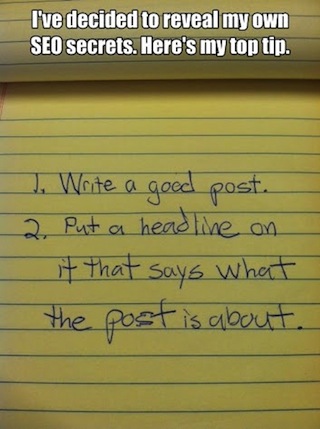 I've decided to reveal my own
SEO secrets. Here's my top tip.
1. Write a good post.
2. Put a headline on
it that says what
the post is about.